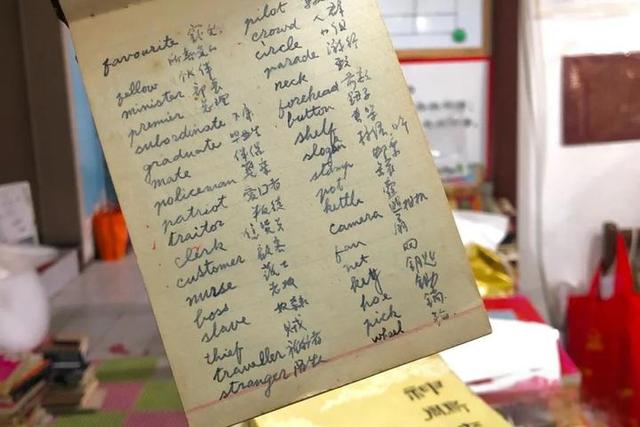 favourite
fellow 伙伴
minister 部长
premier 总理
subordinate 下属
graduate 毕业生
mate 伴侣
policeman 警察
patriot 爱国者
traitor 叛徒
clerk
customer 顾客
nurse 护士
boss 老板
slave 奴隶
thief 贼
traveller 旅行者
stranger 陌生人
pilot
crowd 人群
circle
parade 游行
neck
forehead 前额
button 钮子
shelf
slogan
stamp 邮票
pot
kettle 壶
camera 照相机
fan 扇
net 网
key 钥匙
hoe 锄
pick 镐
wheel 轮